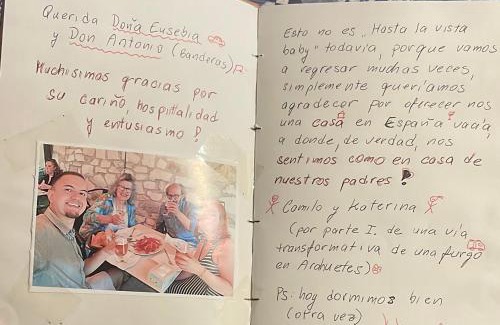 Querida Doña Eusebia
y Don Antonio (Banderas)
Muchisimas gracias por
su cariño, hospitalidad
y entusiasmo!
Esto no es „Hasta la vista
baby" todavia, porque vamos
a regresar muchas veces,
simplemente queriamos
agradecer por ofrecer nos
una casa en España vacia,
a donde, de verdad, nos
sentimos como en casa de
nuestros padres!
Camilo y Katerina
(por parte I. de una via
transformativa de una furgo
en Arahuetes)
PS: hoy dormimos bien
(otra vez)